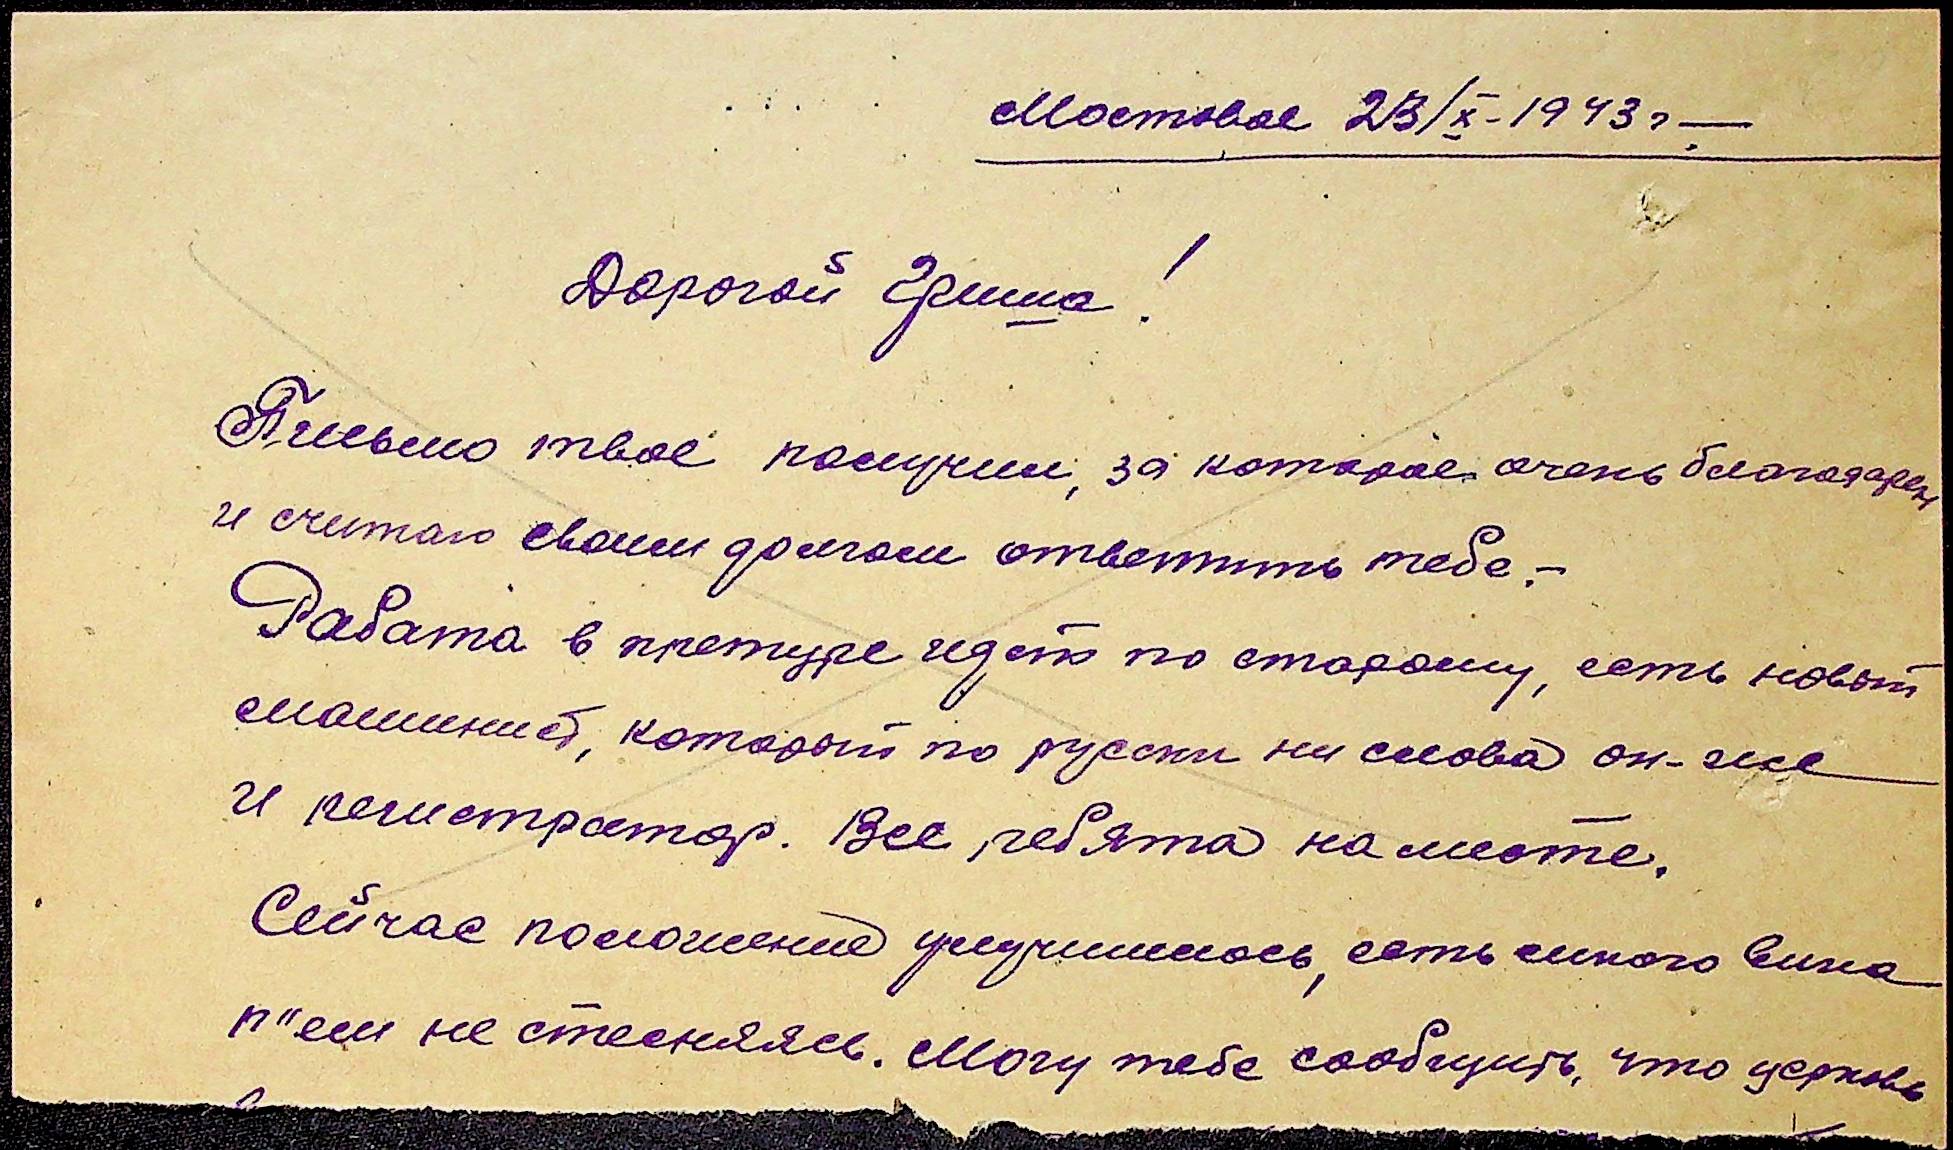 Мостовое 23/X-1943 г.—
Дорогой Гриша!
Письмо твое получил, за которое очень благодарен
и считаю своим долгом ответить тебе.–
Работа в претуре идет по старому, есть новый
машинист, который по русски ни слова он-же
и регистратор. Все ребята на месте.
Сейчас положение улучшилось, есть много вина
п"ем не стесняясь. Могу тебе сообщить, что церковь